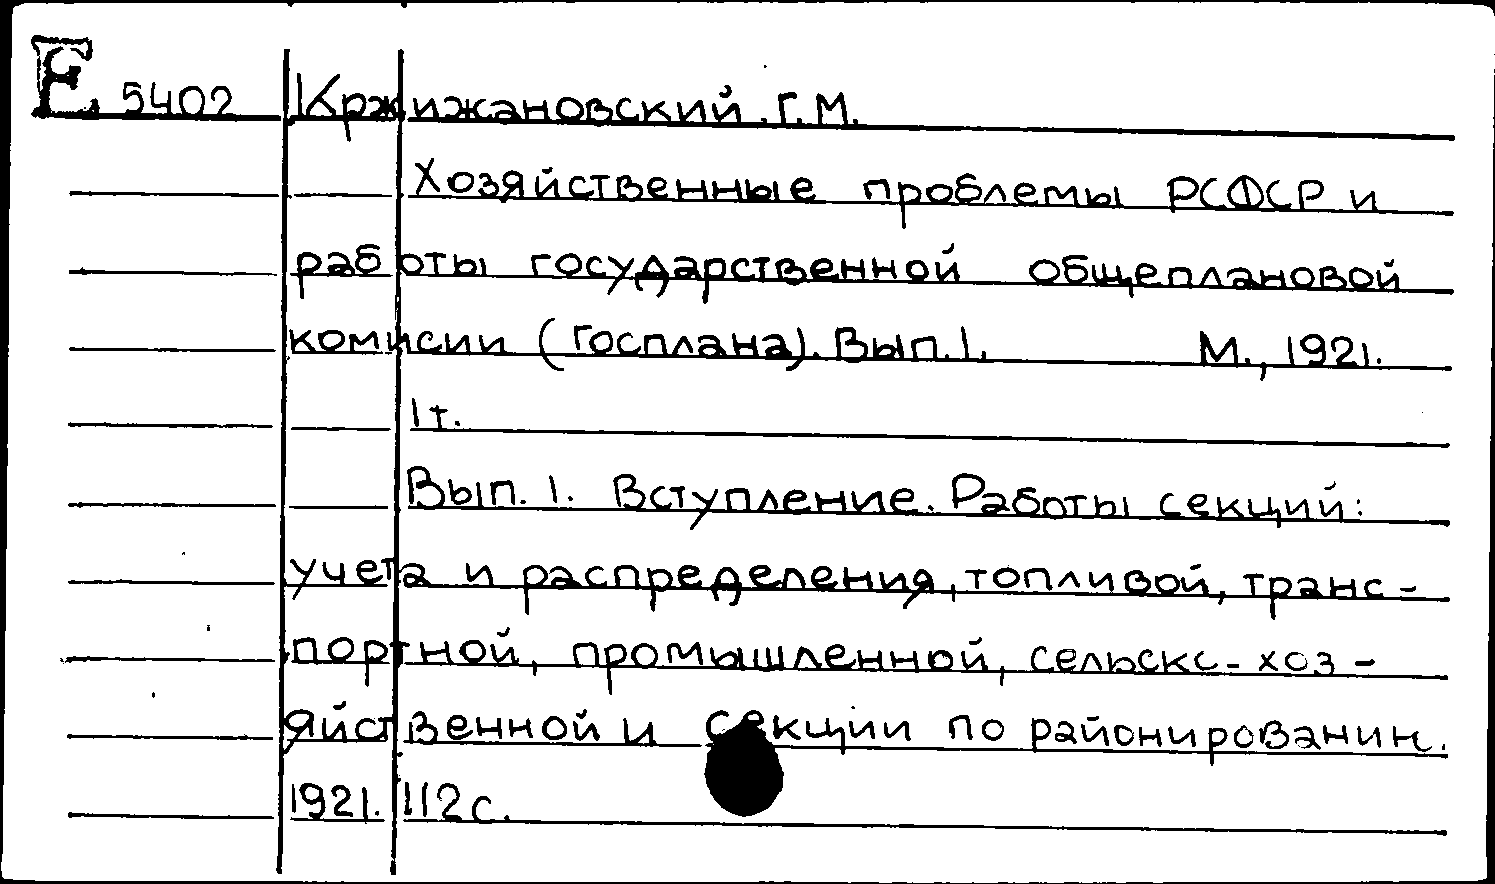 E 5402 Кржижановский Г.М.
Хозяйственные проблемы РСФСР и
работы государственной общеплановой
комисии (Госплана). Вып. 1. М., 1921.
1 т.
Вып. 1. Вступление. Работы секций:
учета и распределения, топливой, транс-
портной, промышленной, сельско-хоз-
яйственной и секции по районированию.
1921. 112 с.